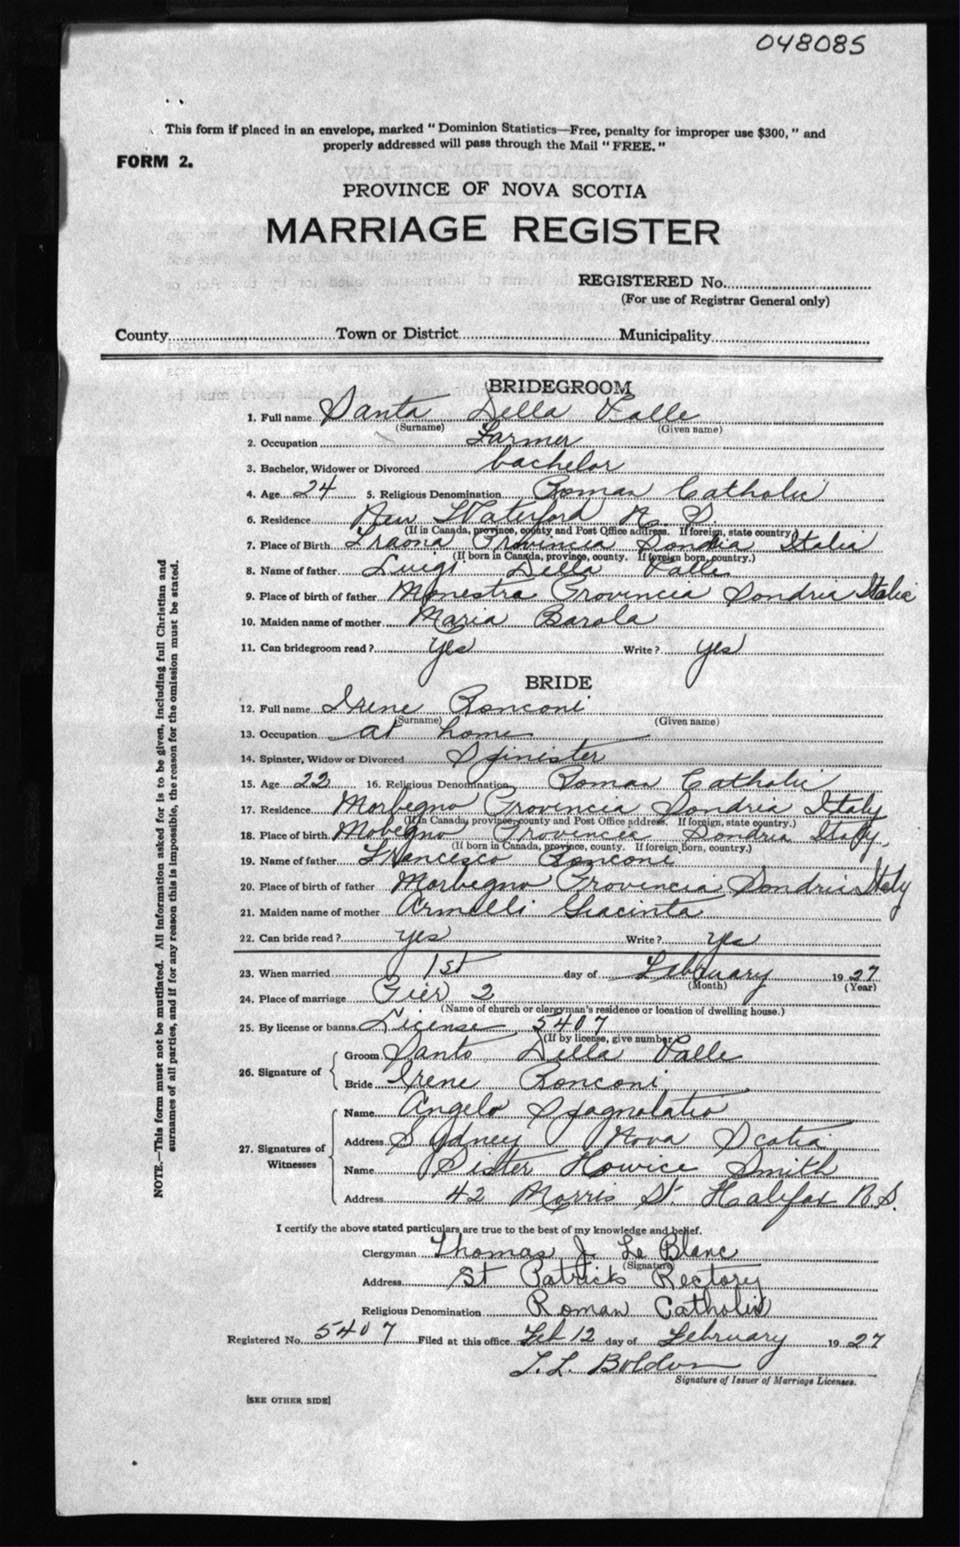 048085
This form if placed in an envelope, marked "Dominion Statistics—Free, penalty for improper use $300," and
properly addressed will pass through the Mail "FREE."
FORM 2.
PROVINCE OF NOVA SCOTIA
MARRIAGE REGISTER
REGISTERED No.
(For use of Registrar General only)
County Town or District Municipality
BRIDEGROOM
1. Full name Santa Della Valle
(Surname) (Given name)
2. Occupation Farmer
3. Bachelor, Widower or Divorced bachelor
4. Age 24 5. Religious Denomination Roman Catholic
6. Residence New Waterford N. S.
(If in Canada, province, county and Post Office address. If foreign, state country.)
7. Place of Birth Traona Provincia Sondria Italia
(If born in Canada, province, county. If foreign born, country.)
8. Name of father Luigi Della Valle
9. Place of birth of father Menestra Provincia Sondria Italia
10. Maiden name of mother Maria Barola
11. Can bridegroom read? Yes Write? yes
BRIDE
12. Full name Irene Ronconi
(Surname) (Given name)
13. Occupation at home
14. Spinster, Widow or Divorced Spinister
15. Age 22 16. Religious Denomination Roman Catholic
17. Residence Morbegno Provincia Sondria Italy
(If in Canada, province, county and Post Office address. If foreign, state country.)
18. Place of birth Mobegno Provincia Sondria Italy
(If born in Canada, province, county. If foreign Born, country.)
19. Name of father Francesco Ronconi
20. Place of birth of father Morbegno Provincia Sondria Italy
21. Maiden name of mother Armelli Giacinta
22. Can bride read? yes Write? yes
23. When married 1st day of February 1927
(Month) (Year)
24. Place of marriage Pier 2
(Name of church or clergyman's residence or location of dwelling house.)
25. By license or banns License 5407
(If by license, give number)
26. Signature of
Groom Santo Della Valle
Bride Irene Ronconi
27. Signatures of Witnesses
Name Angelo Spagnolatio
Address Sydney Nova Scotia
Name Sister Smith
Address 42 Morris St Halifax N.S.
I certify the above stated particulars are true to the best of my knowledge and belief.
Clergyman Thomas J. Le Blanc
(Signature)
Address St Patricks Rectory
Religious Denomination Roman Catholic
Registered No. 5407 Filed at this office Feb 12 day of February 1927
Signature of Issuer of Marriage Licenses.
[SEE OTHER SIDE]
NOTE.—This form must not be mutilated. All information asked for is to be given, including full Christian and
surnames of all parties, and if for any reason this is impossible, the reason for the omission must be stated.